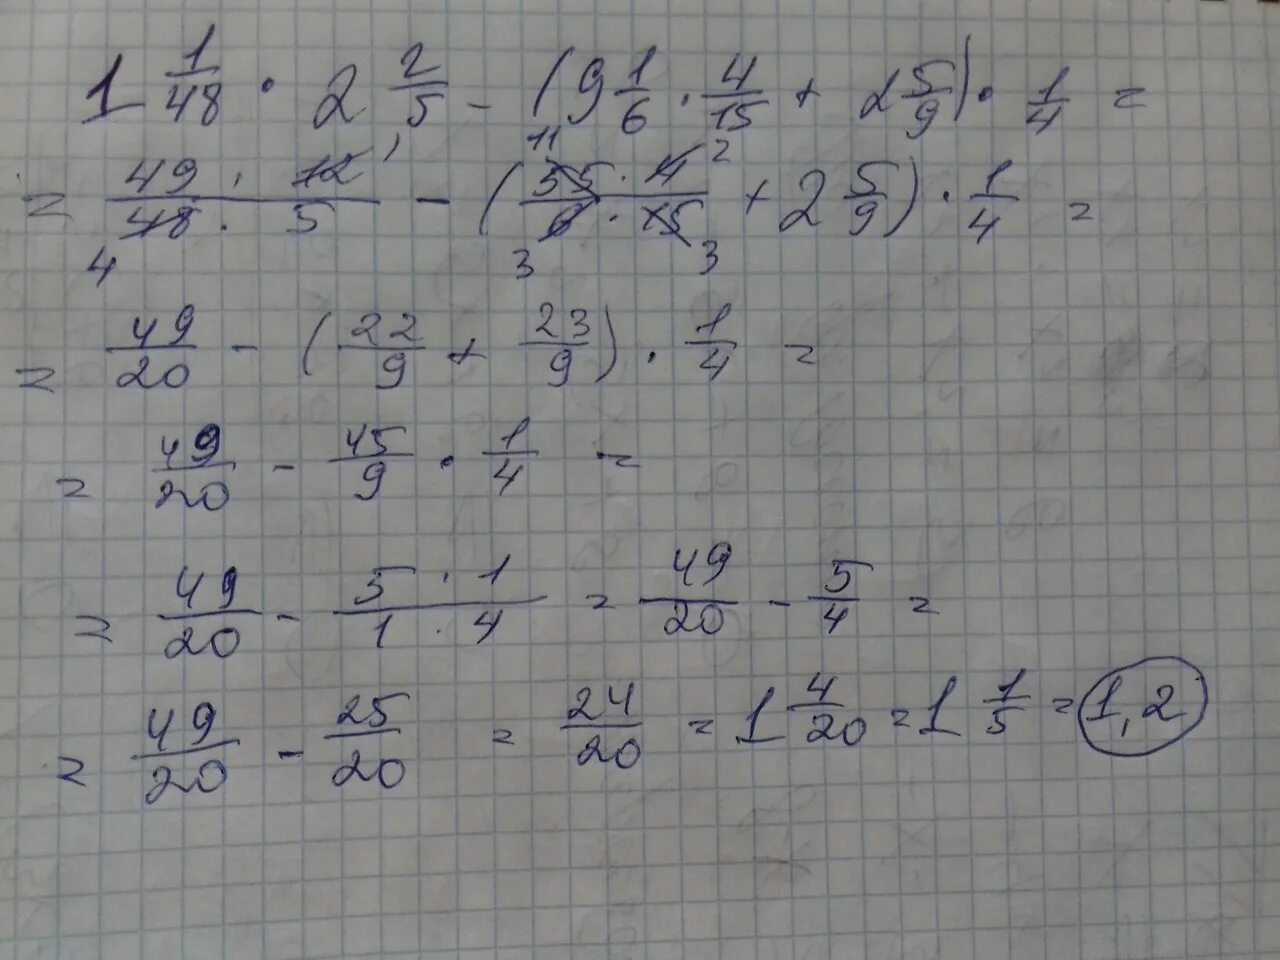 1 1/48 · 2 2/5 - (9 1/6 · 4/15 + 2 5/9) · 1/4 =
= (49 · 12 1)/(48 4 · 5) - ((55 11 · 4 2)/(6 3 · 15 3) + 2 5/9) · 1/4 =
= 49/20 - (22/9 + 23/9) · 1/4 =
= 49/20 - 45/9 · 1/4 =
= 49/20 - (5 · 1)/(1 · 4) = 49/20 - 5/4 =
= 49/20 - 25/20 = 24/20 = 1 4/20 = 1 1/5 = 1,2